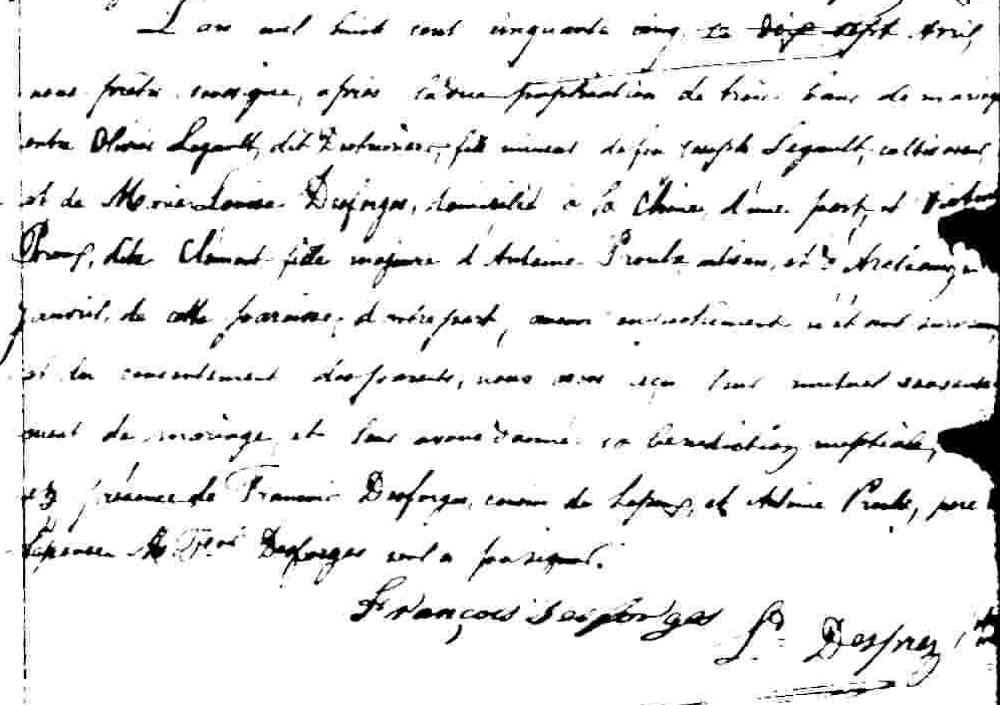 L'an mil huit cent cinquante cinq, le dix sept Avril,
nous prêtre soussigné, après la publication de trois bans de mariage
entre Olivier Legault, dit Deslauriers, fils mineur de feu Joseph Legault, cultivateur
et de Marie Louise Desforges, domicilié à la Chine, d'une part, et
Proulx, dite Clément fille majeure d'Antoine Proulx et
de cette paroisse, d'autre part, aucun empêchement n'étant
et du consentement des parents, nous avons reçu leur mutuel consente
ment de mariage et leur avons donné la bénédiction nuptiale,
en présence de François Desforges, cousin de l'époux, et Antoine Proulx, père
l'épouse Desforges seul a
François Desforges